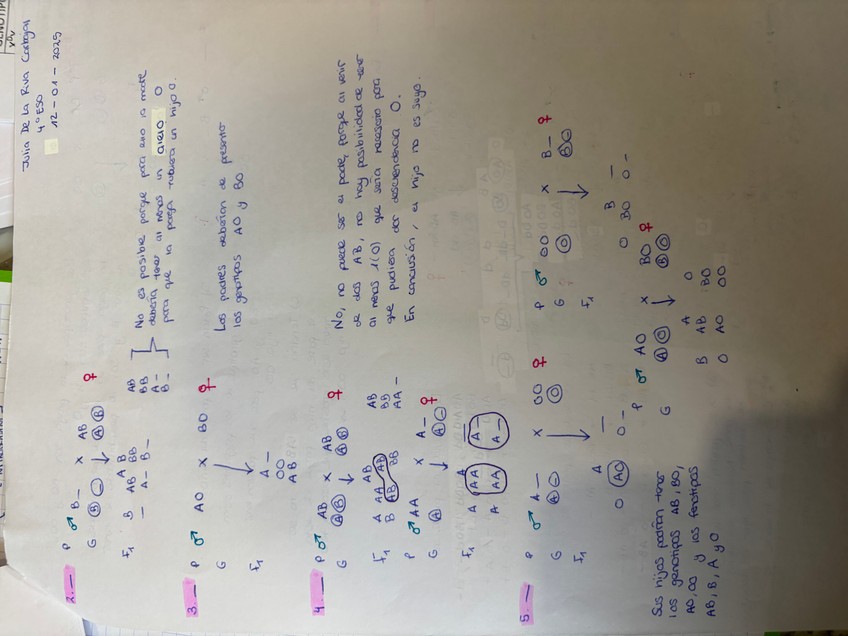 Julia De La Riva Carbajal
4º ESO
12 - 01 - 2025
2.—
P ♂ B _ x AB ♀
G (B) (_) ↓ (A) (B)
F1 B A B
AB BB
_ A _ B _
AB
BB
A _
B _
No es posible porque para eso la madre
debería tener al menos un alelo O
para que la pareja tuviera un hijo O.
3.— P ♂ AO x BO ♀
G
F1 A _
OO
AB
Los padres deberían de presentar
los genotipos AO y BO
4.— P ♂ AB x AB ♀
G (A)(B) ↓ (A)(B)
F1 A B
A AA AB
B AB BB
AB
BB
AA _
P ♂ AA x A _ ♀
G (A) ↓ (A)(_)
F1 A _
A AA A _
A AA A _
No, no puede ser el padre, porque al venir
de dos AB, no hay posibilidad de tener
al menos 1(O) que sería necesario para
que pudiera dar descendencia O.
En conclusión, el hijo no es suyo.
5.— P ♂ A _ x OO ♀
G (A)(_) (O)
F1
A _
O (AO) O _
P ♂ OO x B _ ♀
G (O) (B)(_)
F1
B _
O BO O _
P ♂ AO x BO ♀
G (A)(O) ↓ (B)(O)
A O
B AB BO
O AO OO
Sus hijos podrían tener
los genotipos AB, BO,
AO, OO y los fenotipos
AB, B, A y O